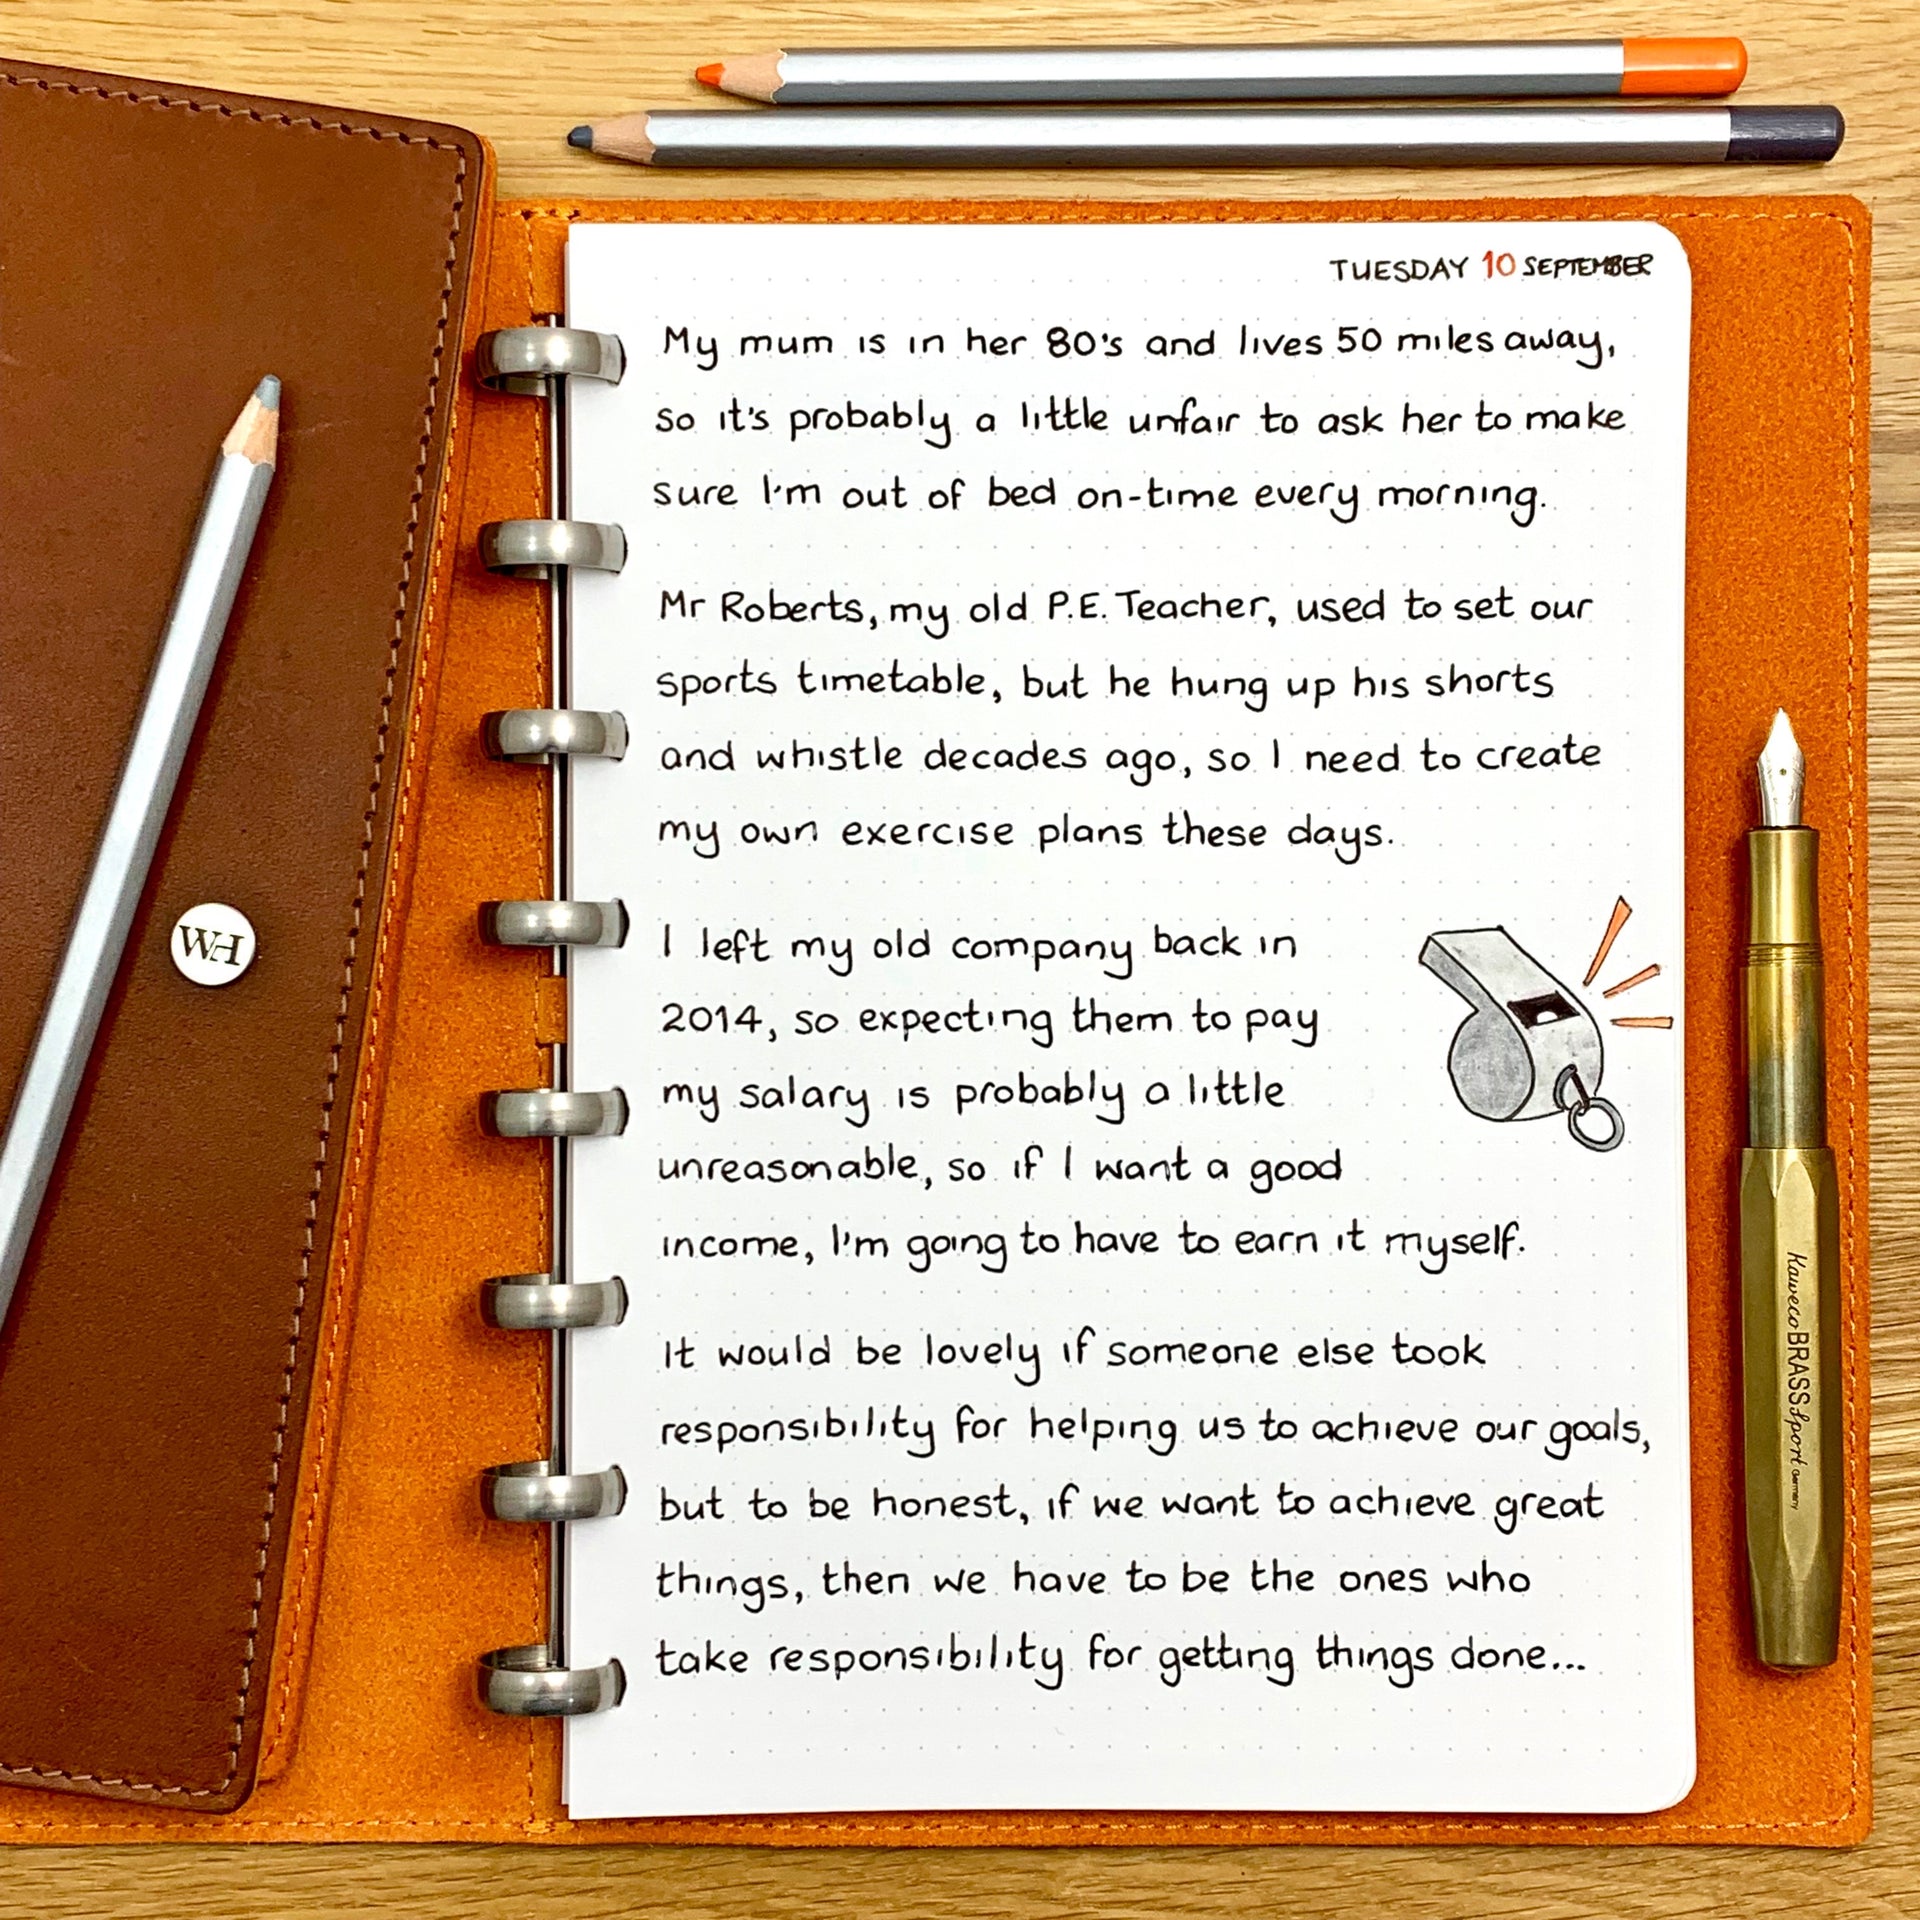 TUESDAY 10 SEPTEMBER
My mum is in her 80's and lives 50 miles away,
so it's probably a little unfair to ask her to make
sure I'm out of bed on-time every morning.
Mr Roberts, my old P.E. Teacher, used to set our
sports timetable, but he hung up his shorts
and whistle decades ago, so I need to create
my own exercise plans these days.
I left my old company back in
2014, so expecting them to pay
my salary is probably a little
unreasonable, so if I want a good
income, I'm going to have to earn it myself.
It would be lovely if someone else took
responsibility for helping us to achieve our goals,
but to be honest, if we want to achieve great
things, then we have to be the ones who
take responsibility for getting things done...
WH
Kaweco BRASS Sport Germany